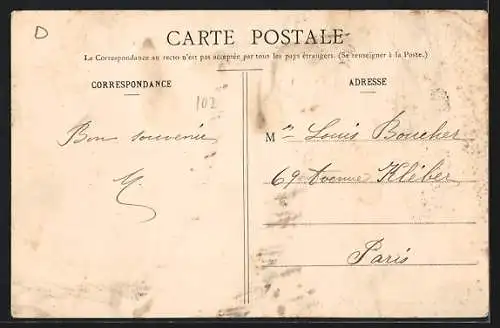 D
CARTE POSTALE
La Correspondance au recto n'est pas acceptée par tous les pays étrangers. (Se renseigner à la Poste.)
CORRESPONDANCE
102
Bon souvenir
ADRESSE
M Louis Boucher
69 Avenue Kléber
Paris